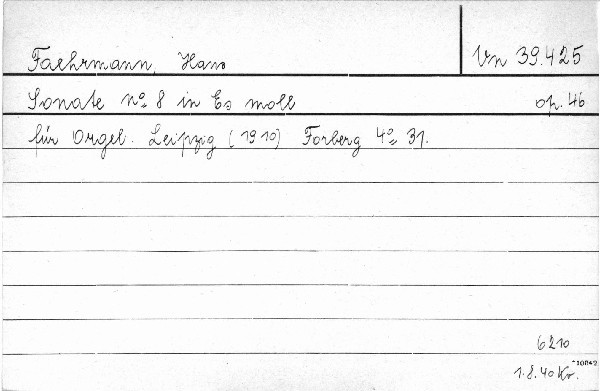 Faehrmann, Hans Vn 39.425
Sonate No 8 in Es moll op. 46
für Orgel. Leipzig (1910) Forberg 4o 31.
6210
10842
1.8.40 Kr.